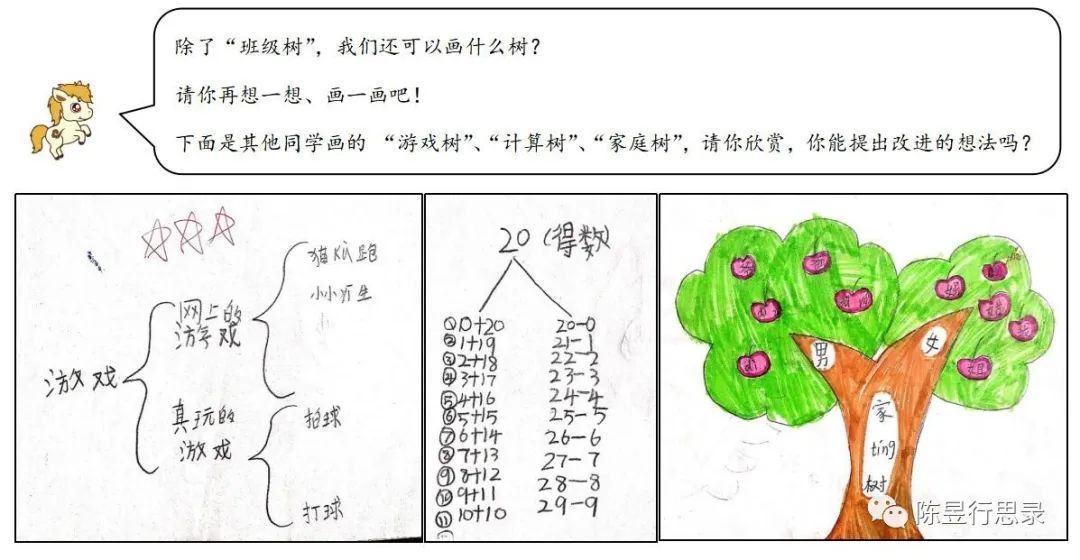 除了“班级树”，我们还可以画什么树？
请你再想一想、画一画吧！
下面是其他同学画的 “游戏树”、“计算树”、“家庭树”，请你欣赏，你能提出改进的想法吗？
游戏
网上的
游戏
真玩的
游戏
拍球
打球
20 (得数)
①0+20
②1+19
③2+18
④3+17
⑤4+16
⑥5+15
⑦6+14
⑧7+13
⑨8+12
⑩9+11
⑪10+10
20-0
21-1
22-2
23-3
24-4
25-5
26-6
27-7
28-8
29-9
男
女
家
ting
树
陈昱行思录